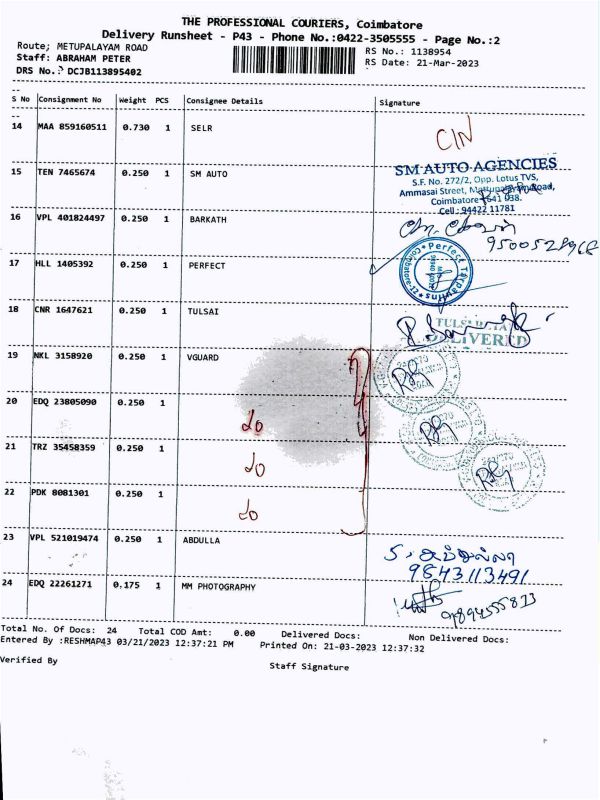 THE PROFESSIONAL COURIERS, Coimbatore
Delivery Runsheet - P43 - Phone No.:0422-3505555 - Page No.:2
Route; METUPALAYAM ROAD
RS No.: 1138954
Staff: ABRAHAM PETER
RS Date: 21-Mar-2023
DRS No.: DCJB113895402
S No Consignment No Weight PCS Consignee Details Signature
14 MAA 859160511 0.730 1 SELR
CIN
15 TEN 7465674 0.250 1 SM AUTO
SM AUTO AGENCIES
S.F. No. 272/2, Opp. Lotus TVS,
Ammasai Street, Mettupalayam Road,
Coimbatore - 641 038.
Cell : 94422 11781
16 VPL 401824497 0.250 1 BARKATH
17 HLL 1405392 0.250 1 PERFECT
Perfect Tarpaulins
Coimbatore-12
18 CNR 1647621 0.250 1 TULSAI
DELIVERED
19 NKL 3158920 0.250 1 VGUARD
20 EDQ 23805090 0.250 1
21 TRZ 35458359 0.250 1
22 PDK 8081301 0.250 1
23 VPL 521019474 0.250 1 ABDULLA
9843113491
24 EDQ 22261271 0.175 1 MM PHOTOGRAPHY
Total No. Of Docs: 24 Total COD Amt: 0.00 Delivered Docs: Non Delivered Docs:
Entered By :RESHMAP43 03/21/2023 12:37:21 PM Printed On: 21-03-2023 12:37:32
Verified By
Staff Signature